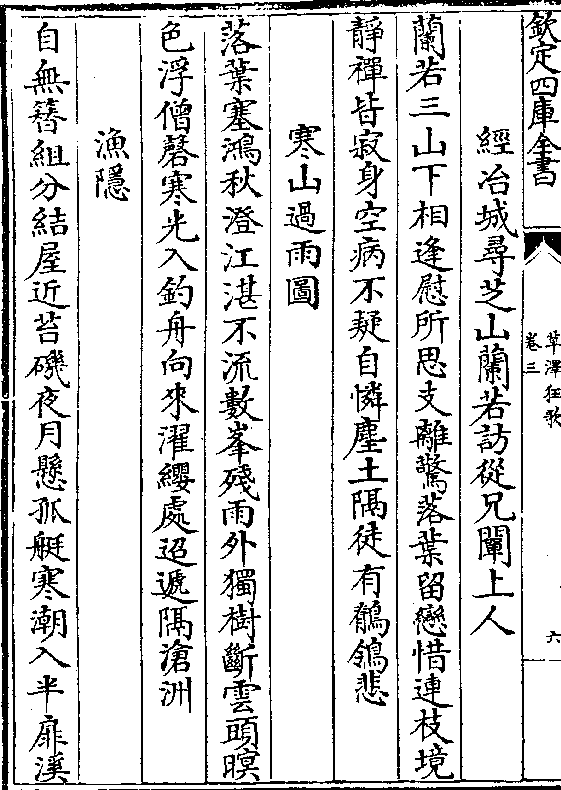 欽定四庫全書
草澤狂歌
卷三
六
經冶城尋芝山蘭若訪從兄闡上人
蘭若三山下相逢慰所思支離驚落葉留戀惜連枝境
靜禪皆寂身空病不疑自憐塵土隔徒有鶺鴒悲
寒山過雨圖
落葉塞鴻秋澄江湛不流數峯殘雨外獨樹斷雲頭暝
色浮僧磬寒光入釣舟向來濯纓處迢遞隔滄洲
漁隱
自無簪組分結屋近苔磯夜月懸孤艇寒潮入半扉溪